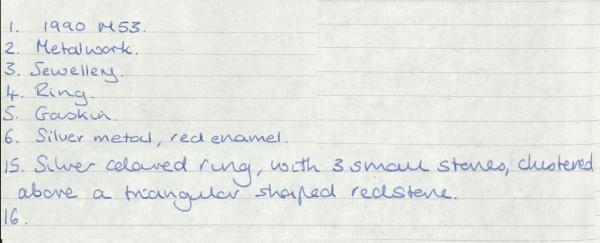 1. 1990 M53.
2. Metalwork.
3. Jewellery.
4. Ring.
5. Gaskin.
6. Silver metal, red enamel.
15. Silver coloured ring, with 3 small stones, clustered
above a triangular shaped redstone.
16.